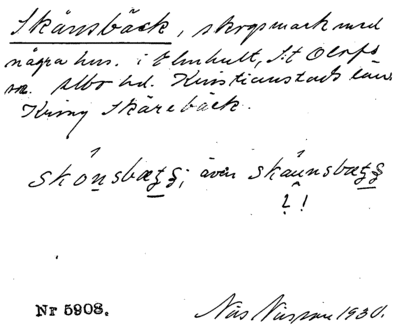 Skånsbäck, skogsmark med
några hus. i Elmhult, S:t Olofs
sn. Albo hd. Kristianstads län.
Kring Skärebäck.
skånsbæʒʒ; även skåunsbæʒʒ
? !
Nr 5908.
1930.